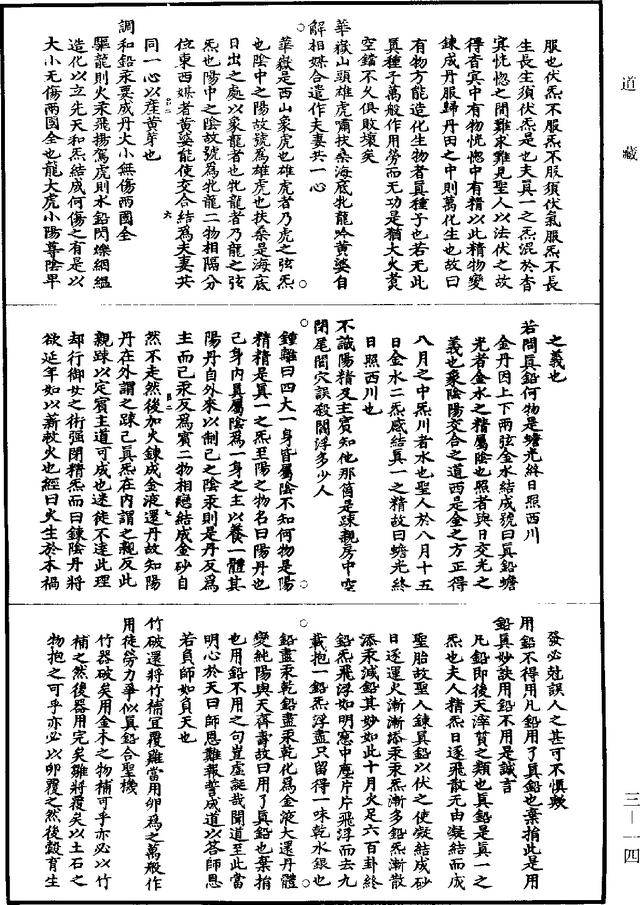 道藏
服也伏炁不服炁不服須伏氣服炁不長
生長生須伏炁是也夫真一之炁混於杳
冥恍惚之間難求難見聖人以法伏之故
得杳冥中有物恍惚中有精以此精物變
鍊成丹服歸丹田之中則萬化生也故曰
有物方能造化生物者真種子也若无此
真種子萬般作用勞而无功是猶大火煑
空鐺不久俱敗壞矣
華嶽山頭雄虎嘯扶桑海底牝龍吟黄婆自
解相媒合遣作夫妻共一心
華嶽是西山象虎也雄虎者乃虎之弦炁
也陰中之陽故號爲雄虎也扶桑是海底
日出之處以象龍者也牝龍者乃龍之弦
炁也陽中之陰故號爲牝龍二物相隔分
位東西媒者黄婆能使交合結爲夫妻共
同一心以産黄芽也
調和鉛汞要成丹大小無傷兩國全
驅龍則火汞飛揚駕虎則水鉛閃爍絪縕
造化以立先天和炁結成何傷之有是以
大小无傷兩國全也龍大虎小陽尊陰卑
之義也
若問真鉛何物是蟾光終日照西川
金丹因上下兩弦金水結成號曰真鉛蟾
光者金水之精屬陰也照者與日交光之
義也象陰陽交合之道西是金之方正得
八月之中炁川者水也聖人於八月十五
日金水二炁感結真一之精故曰蟾光終
日照西川也
不識陽精及主賓知他那箇是踈親房中空
閉尾閭穴誤殺閻浮多少人
鍾離曰四大一身皆屬陰不知何物是陽
精精是真一之炁至陽之物名曰陽丹也
己身内真屬陰爲一身之主以養一體其
陽丹自外來以制己之陰汞則是丹反爲
主而己汞反爲賓二物相戀結成金砂自
然不走然後加火鍊成金液還丹故知陽
丹在外謂之踈己真炁在内謂之親反此
親踈以定賓主道可成也迷徒不達此理
却行御女之術强閉精炁而曰鍊陰丹將
欲延年如以薪救火也經曰火生於木禍
發必尅誤人之甚可不惧歟
用鉛不得用凡鉛用了真鉛也棄捐此是用
鉛真妙訣用鉛不用是誠言
凡鉛即後天滓質之類也真鉛是真一之
炁也夫人精炁日逐飛散无由凝結而成
聖胎故聖人鍊真鉛以伏之使凝結成砂
日逐運火漸漸添汞汞炁漸多鉛炁漸散
添汞減鉛其妙如此十月火足六百卦終
鉛炁飛浮如明窓中塵片片飛浮而去九
載抱一鉛炁浮盡只留得一味乾水銀也
鉛盡汞乾鉛盡汞乾化爲金液大還丹體
變純陽與天齊壽故曰用了真鉛也棄捐
也用鉛不用之句豈虚誕哉聞道至此當
明心於天曰師恩難報誓成道以答師恩
若負師如負天也
竹破還將竹補宜覆雞當用卵爲之萬般作
用徒勞力爭似真鉛合聖機
竹器破矣用金木之物補可乎亦必以竹
補之然後器用完矣雞將覆矣以土石之
物抱之可乎亦必以卵覆之然後鷇育生
三—一四